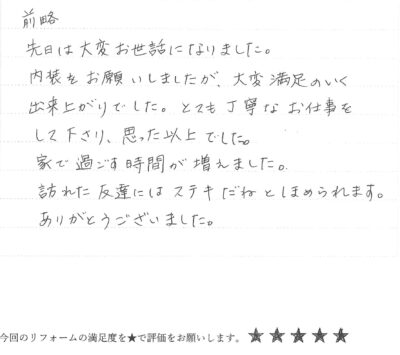 前略
先日は大変お世話になりました。
内装をお願いしましたが、大変満足のいく
出来上がりでした。とても丁寧なお仕事を
して下さり、思った以上でした。
家で過ごす時間が増えました。
訪れた友達にはステキだねとほめられます。
ありがとうございました。
今回のリフォームの満足度を★で評価をお願いします。 ★★★★★